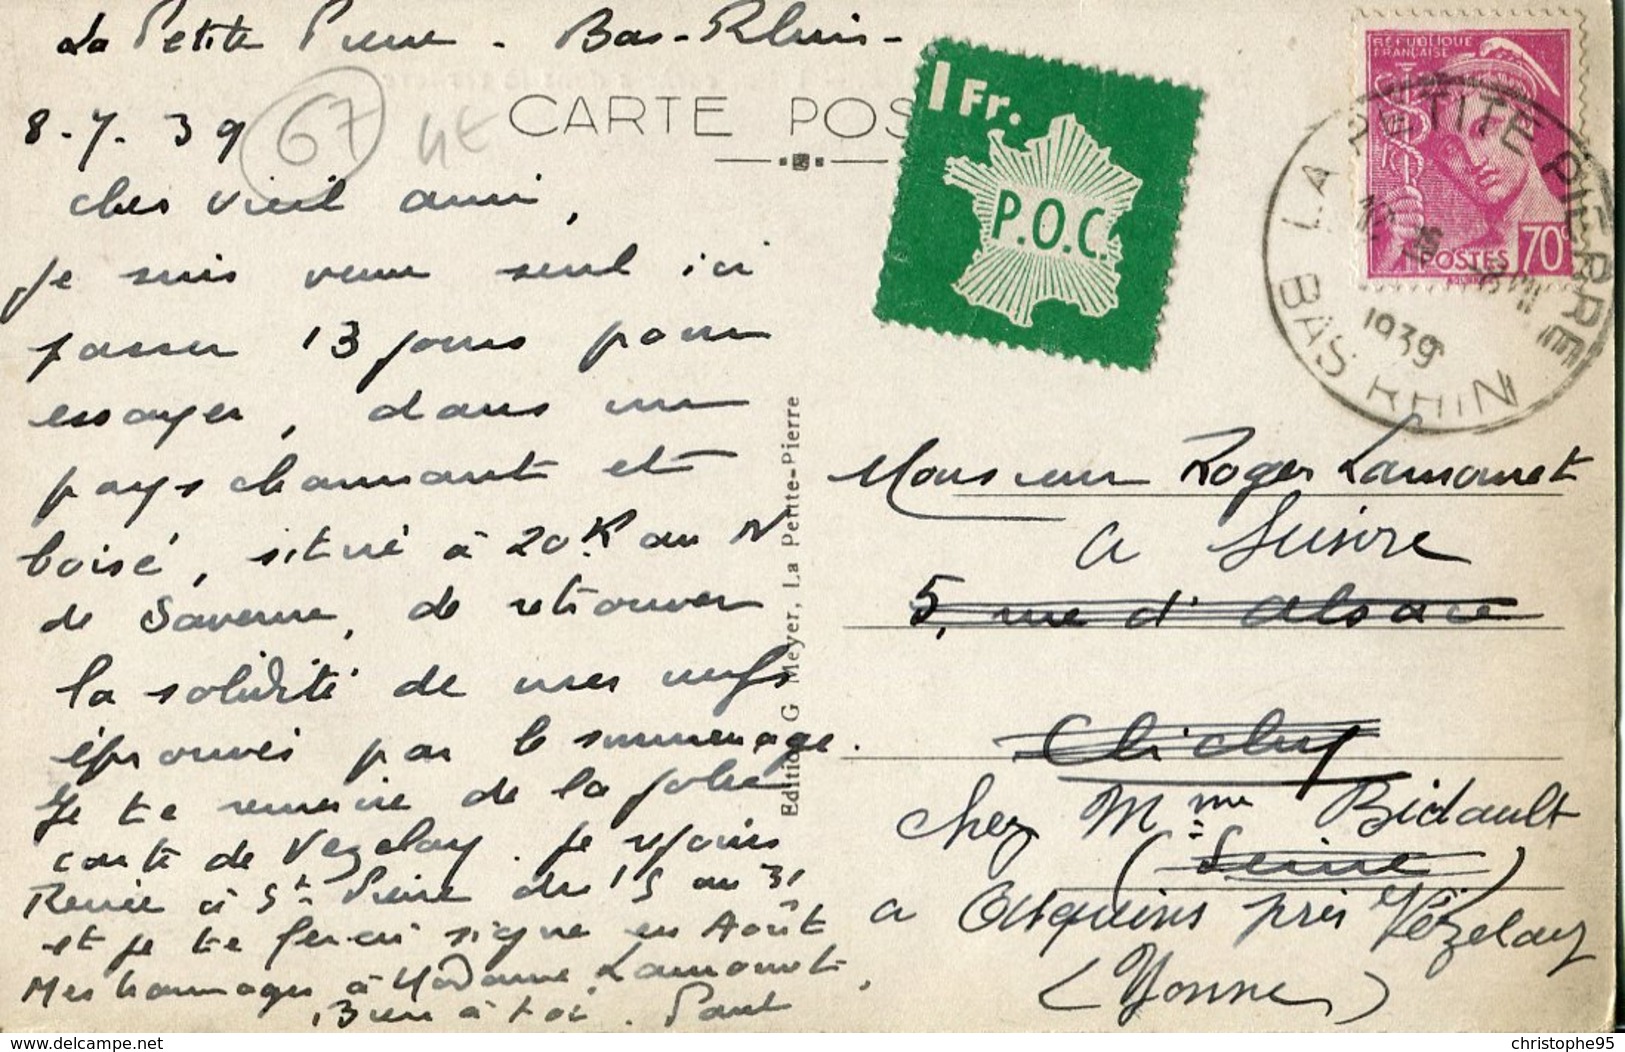 La Petite Pierre - Bas-Rhin -
8-7-39
67
CARTE POS
cher vieil ami,
Je suis venu seul ici
passer 13 jours pour
essayer, dans un
pays charmant et
boisé, situé à 20 K au N
de Saverne, de retrouver
la solidité de mes nerfs
éprouvés par le surmenage.
Je te remercie de la jolie
carte de Vezelay. Je rejoins
Renée à St Pierre du 15 au 31
et je te ferai signe en Août
Mes hommages à Madame Lamouret.
Bien à toi. Paul
Edition G Meyer, La Petite-Pierre
1 Fr.
P.O.C.
RÉPUBLIQUE
FRANÇAISE
POSTES 70c
LA PETITE PIERRE
1939
BAS RHIN
Monsieur Roger Lamouret
a Suivre
5, rue d'Alsace
Clichy
chez Mme Bidault
(Seine)
a Asquins près Vézelay
(Yonne)
www.delcampe.net
christophe95